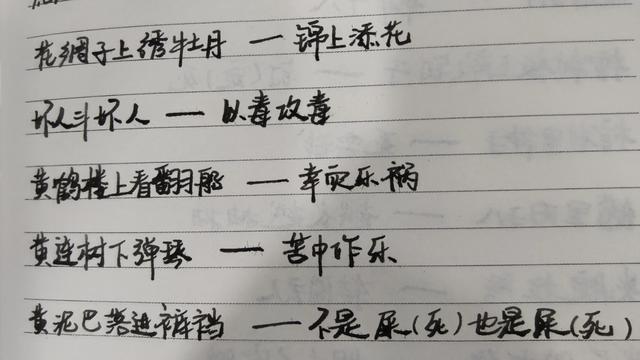 花绸子上绣牡丹 — 锦上添花
坏人斗坏人 — 以毒攻毒
黄鹤楼上看翻船 — 幸灾乐祸
黄连树下弹琴 — 苦中作乐
黄泥巴落进裤裆 — 不是屎(死)也是屎(死)